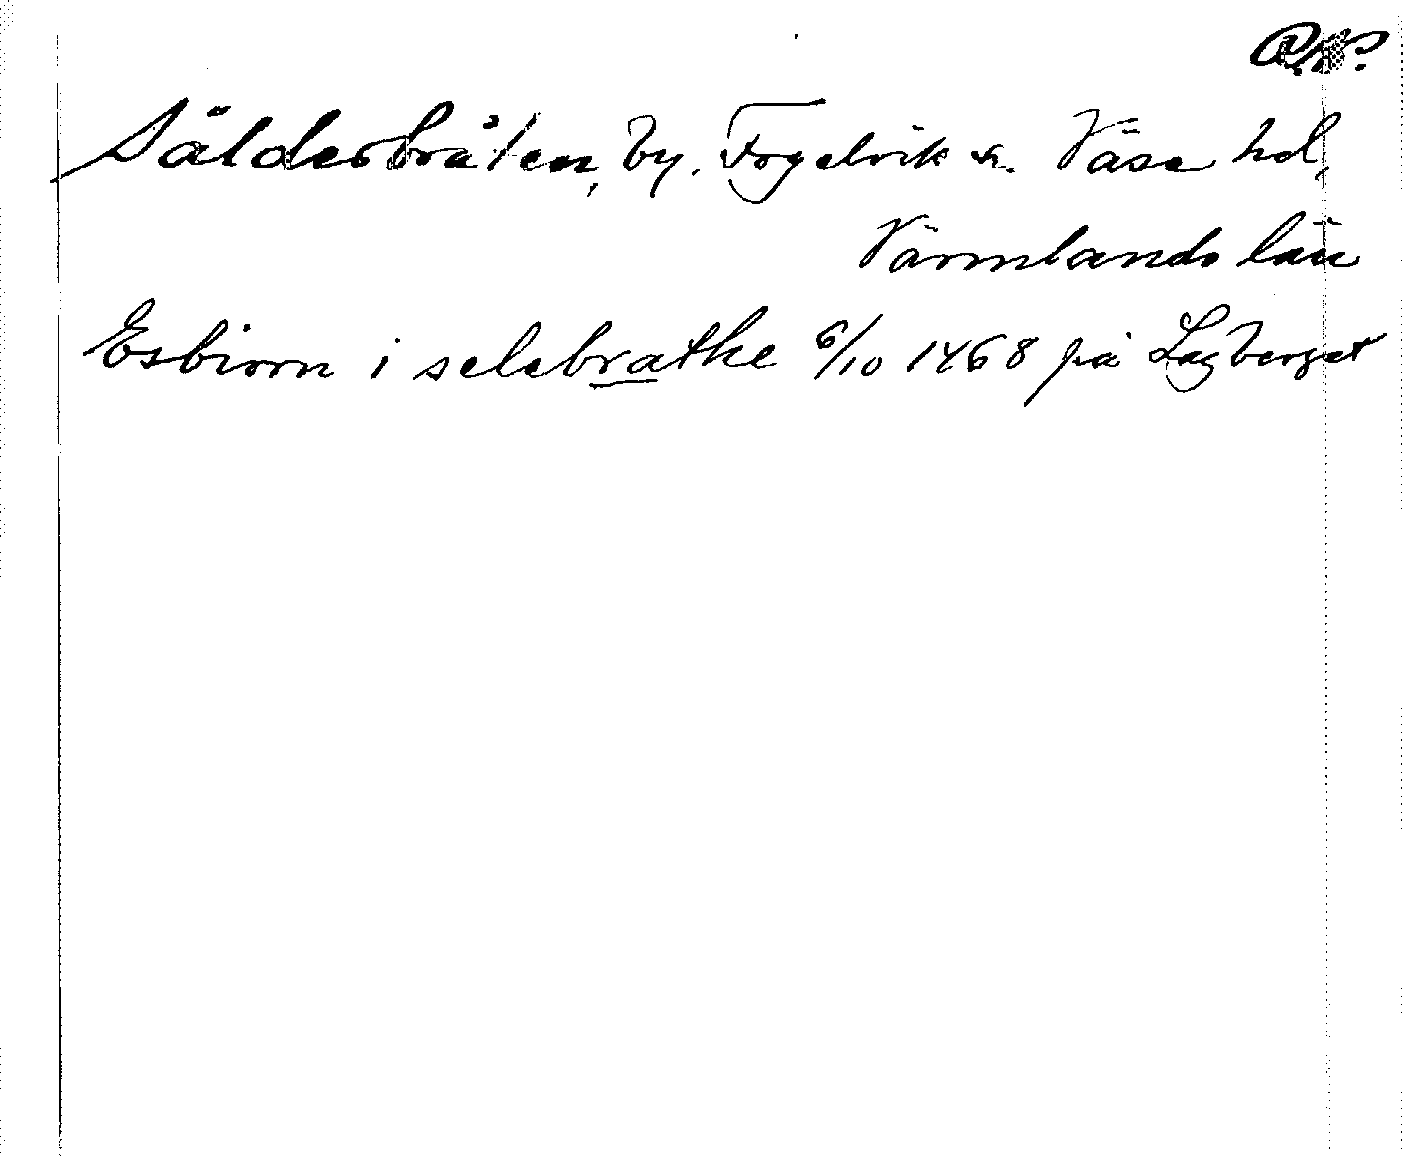 Sälderbråten, by, Fogelvik sn. Väse hd,
Värmlands län
Esbiorn i selebrathe 6/10 1468 på Lagberget